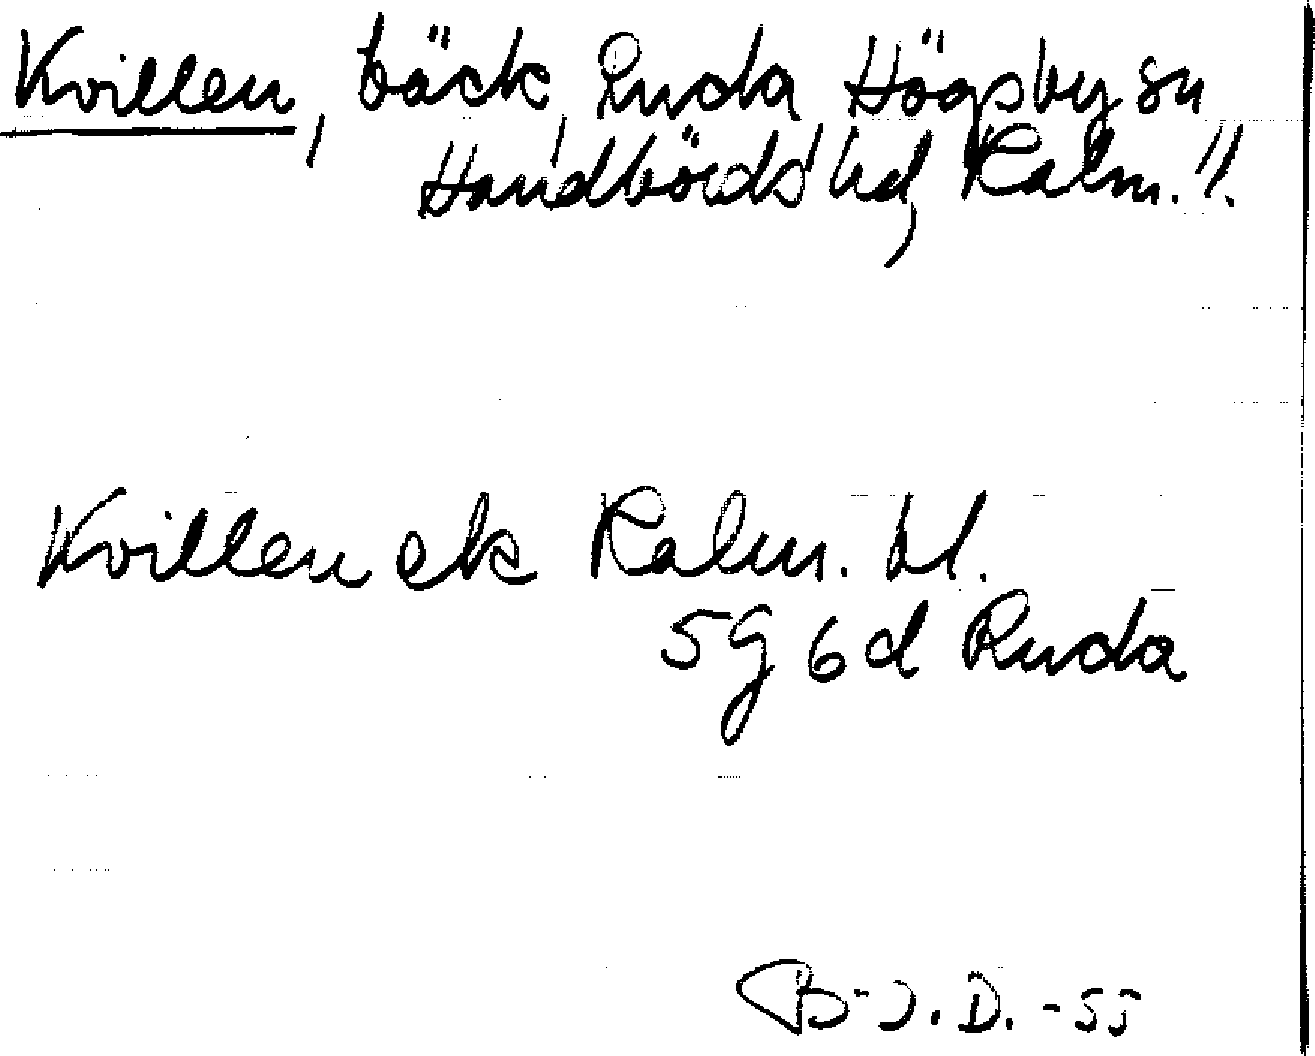 Kvillen, bäck, Ruda, Högsby sn
Handbörds hd, Kalm. l.
Kvillen ek Kalm. bl.
5 G 6 d Ruda
B-J. D. -55